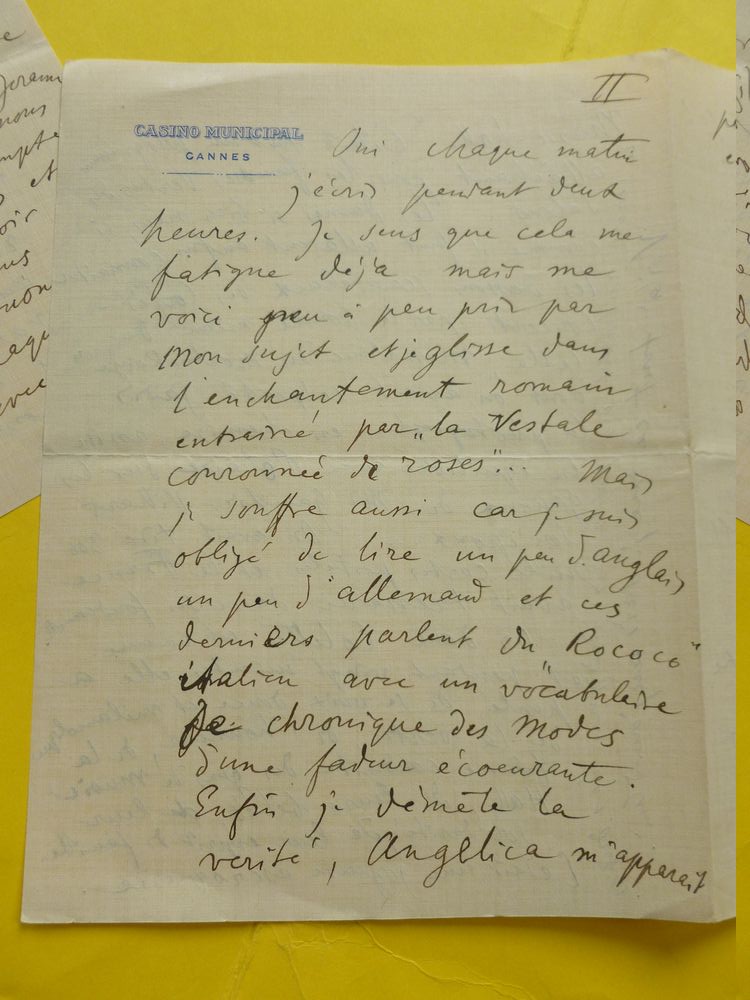 II
CASINO MUNICIPAL
CANNES
Oui chaque matin
j'écris pendant deux
heures. Je sens que cela me
fatigue déjà mais me
voici peu à peu pris par
mon sujet et je glisse dans
l'enchantement romain
entrainé par "la Vestale
couronnée de roses"... Mais
je souffre aussi car je suis
obligé de lire un peu d'anglais
un peu d'allemand et ces
derniers parlent du "Rococo"
italien avec un vocabulaire
de chronique des Modes
d'une fadeur écoeurante.
Enfin je démêle la
verité, Angelica m'apparaît